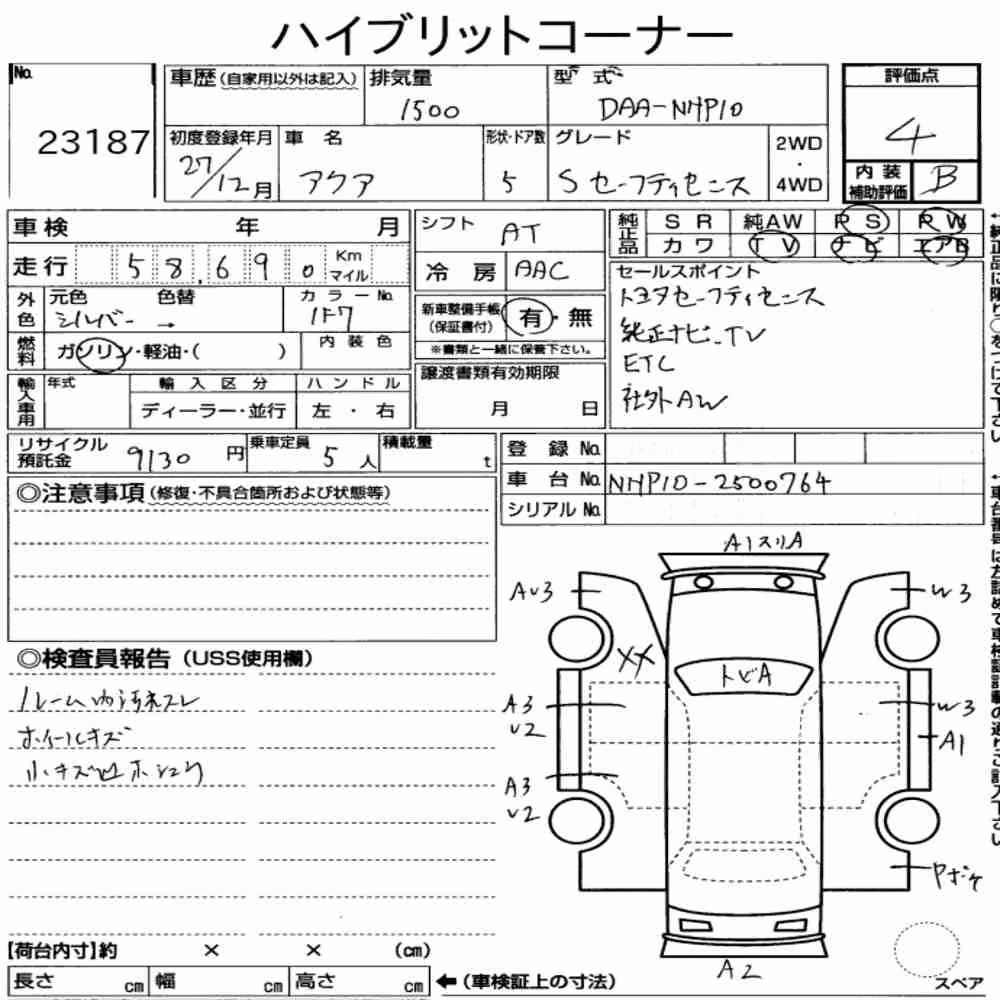 ハイブリットコーナー
No. 23187
車歴(自家用以外は記入)
排気量 1500
型式 DAA-NHP10
評価点 4
内装補助評価 B
初度登録年月 27/12月
車名 アクア
形状・ドア数 5
グレード Sセーフティセンス
2WD・4WD
車検 年 月
走行 58,690 Km マイル
シフト AT
冷房 AAC
純正品 SR 純AW PS PW
カワ TV ナビ エアB
外色 元色 色替 カラーNo.
シルバー → 1F7
燃料 ガソリン・軽油・( )
内装色
新車整備手帳(保証書付) 有・無
※書類と一緒に保管下さい。
譲渡書類有効期限
月 日
セールスポイント
トヨタセーフティセンス
純正ナビ、TV
ETC
社外AW
輸入車用 年式 輸入区分 ハンドル
ディーラー・並行 左・右
リサイクル預託金 9130円
乗車定員 5人
積載量 t
登録No.
車台No. NHP10-2500764
シリアルNo.
◎注意事項(修復・不具合箇所および状態等)
◎検査員報告(USS使用欄)
ルーム内汚れスレ
ホイールキズ
小キズ凹
A1スリA
AU3
W3
XX
トビA
A3
U2
W3
A1
A3
U2
Pボケ
A2
スペア
【荷台内寸】約 × × (cm)
長さ cm 幅 cm 高さ cm
←(車検証上の寸法)